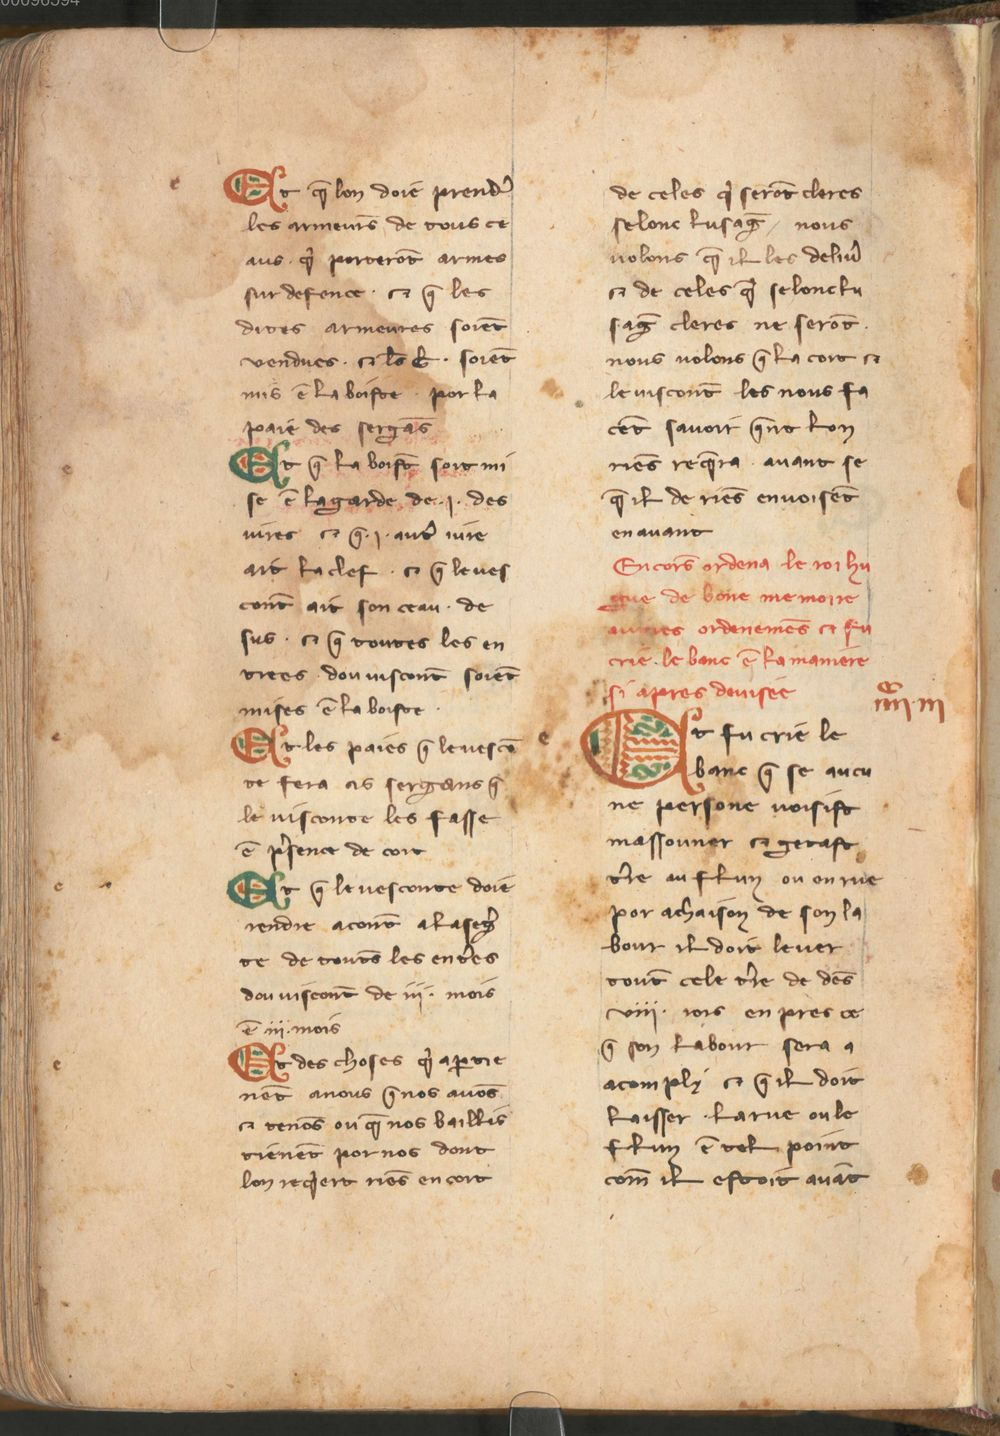 Et q̄ lon doie prendr̾
les armeur̄s de tous ce
aus · q̾ porterōt armes
sur defence · ⁊ q̄ les
dites armeures soiēt
vendues · ⁊ soiēt
mis ē la boiste · por la
paie des sergās
Et q̄ la boist̄ soit mi
se ē la garde de · j · des
iures ⁊ q̄ · j · autr̾ iure
ait la clef · ⁊ q̄ le ves
cont̄ ait son ceau · de
sus · ⁊ q̄ toutes les en
trees dou viscont̄ soiēt
mises ē la boiste ·
Et les paies q̄ le vescō
te fera as sergans q̄
le visconte les fasse
ē p̾sence de cort
Et q̄ le vesconte doie
rendre acont̄ a la seg̾
te de tout̄s les ent̾es
dou viscont̄ de iij · mois
ē iij · mois
Et des choses q̾ apartie
nēt a nous q̄ nos avōs
⁊ tenōs ou q̄ nos baillis
tienēt por nos dont
lon req̾ert riēs en cort
de celes q̾ serōt cleres
selonc l usaḡ / nous
volons q̄ il les deliur̾
⁊ de celes q̾ selonc lu
saḡ cleres ne serōt ·
nous volons q̄ la cort ⁊
le viscont̄ les nous fa
cēt savoir q̄nt lon
riēs req̄rra · avant se
q̄ il de riēs envoisēt
en avant
Encor̄s ordena le roi hu
gue de bone memoire
autres ordenemēs ⁊ fu
crie · le banc ē la maniere
si apres devisee
iiij · iij
Et fu crie le
banc q̄ se aucu
ne persone voisist
massonner ⁊ getast
t̾re au flun ou en rue
por achaison de son la
bour il doit lever
tout̄ cele t̾re de dēs
viij · iors en pres ce
q̄ son labour sera a
acomply ⁊ q̄ il doit
laisser la rue ou le
flun ē tel point
com̄ il estoit avāt